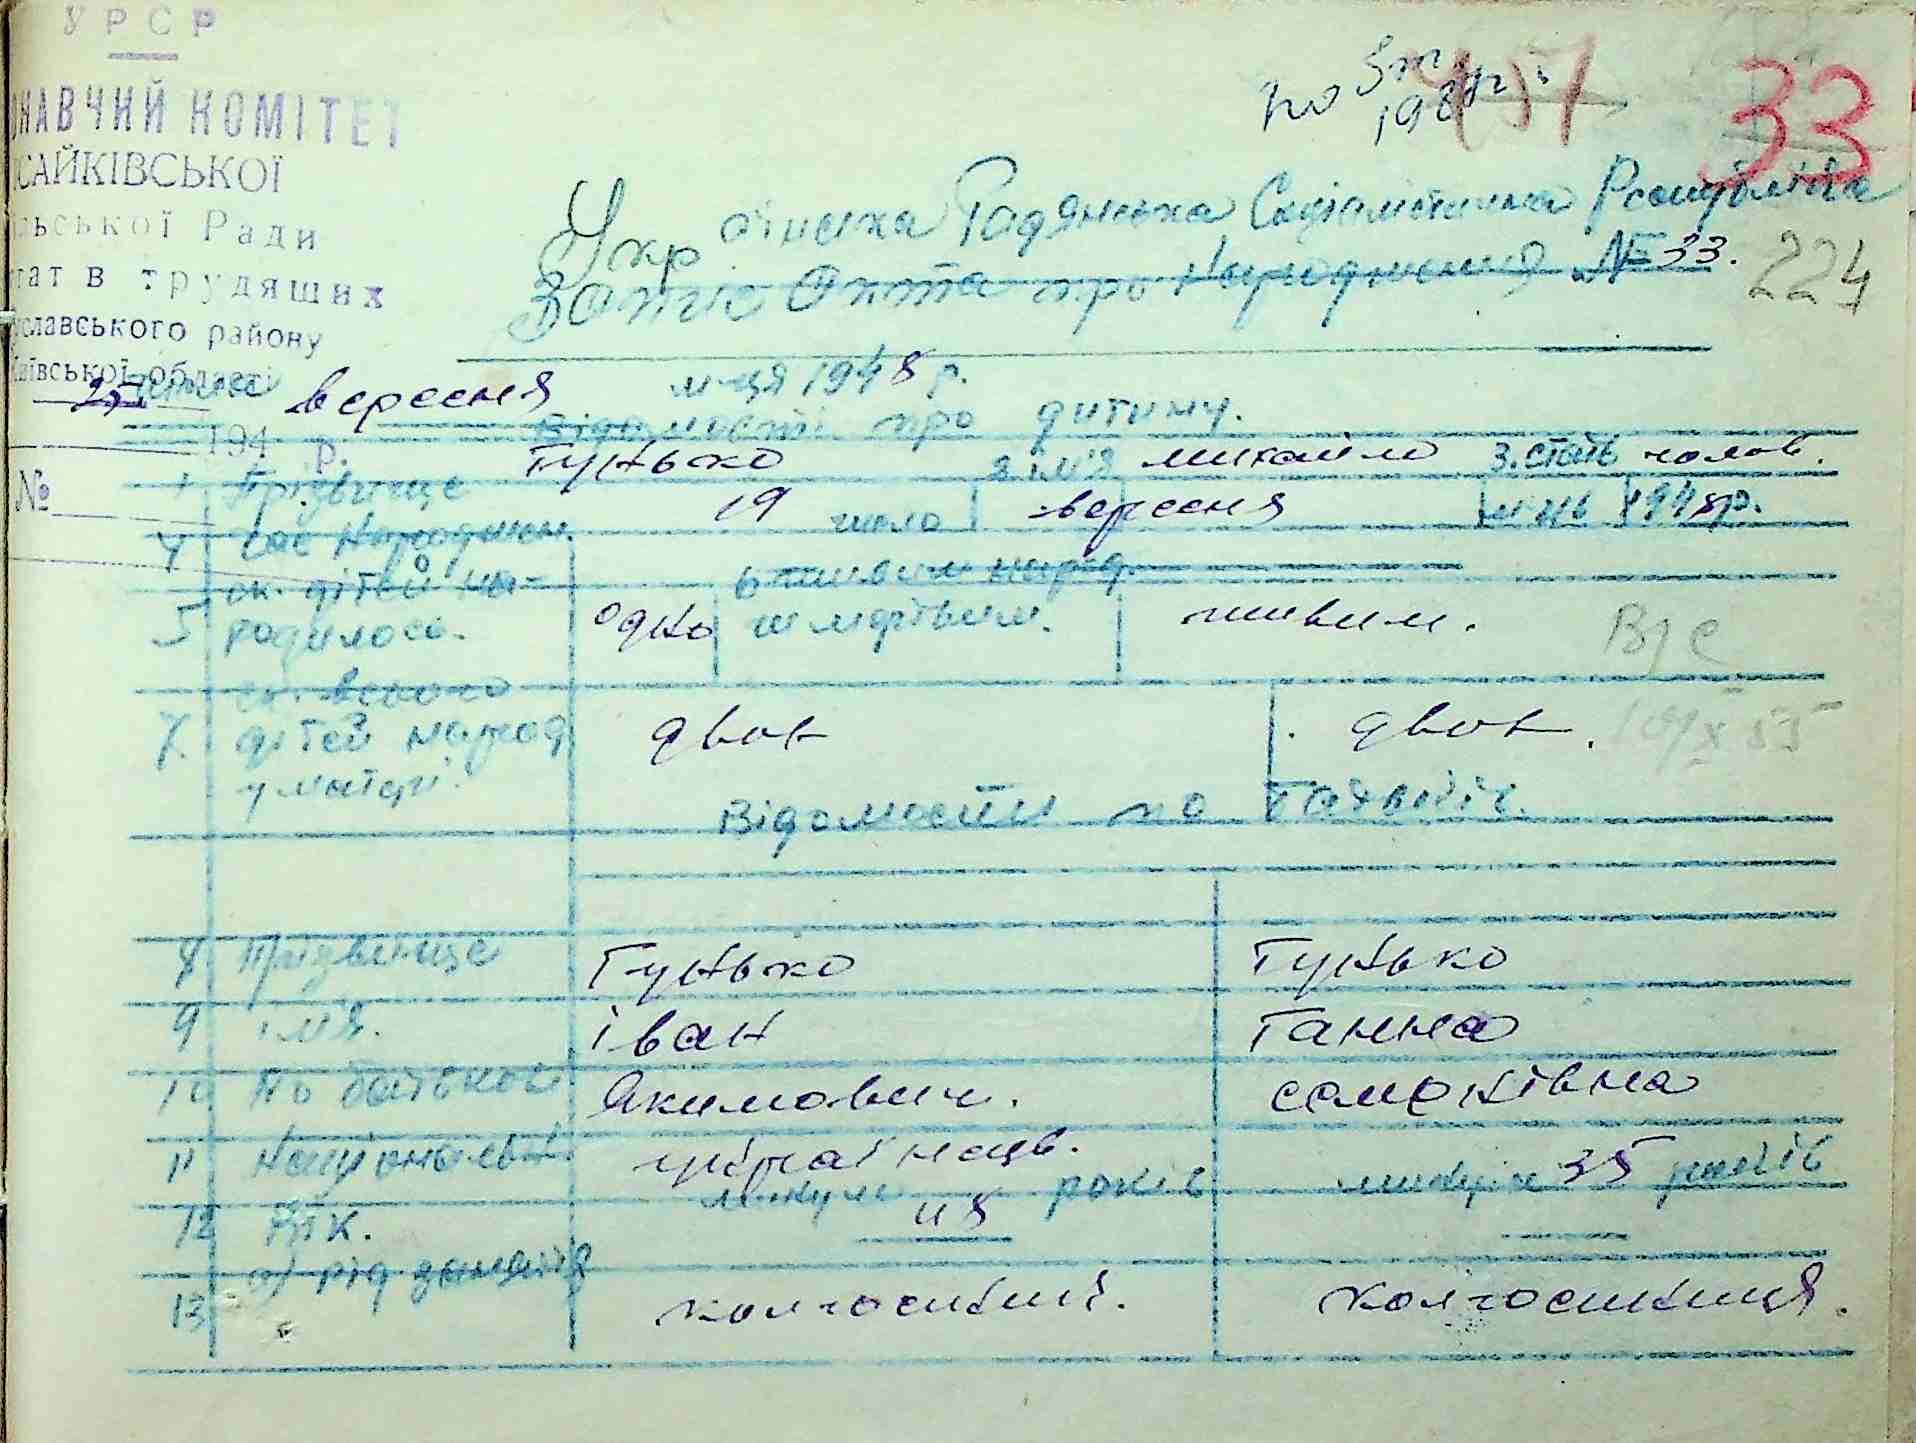 УРСР
НАВЧИЙ КОМІТЕТ
САЙКІВСЬКОЇ
льської Ради
тат в трудящих
славського району
ївської області
194 р.
№
33
по
Українська Радянська Соціалістична Республіка
Запис Акта про Народження №33.
224
25 вересня м-ця 1948 р.
Відомості про дитину.
1 Прізвище Гунько 2 ім'я михайло 3. стать чолов.
4 час Народжен. 19 число вересня м-ць 1948р.
5 ск. дітей на-
родилось. одно живим народ.
чи мертвим. живим.
ВЗС
7. ск. всього
дітей народ
у матері. двох двох.
Відомости по Батьків.
8 Прізвище Гунько Гунько
9 ім'я. Іван Ганна
10 По батькові Якимович. семенівна
11 Національні українець.
12 Вік. минуло 48 років минуло 35 років
13 а) рід заняття колгоспний. колгоспниця.